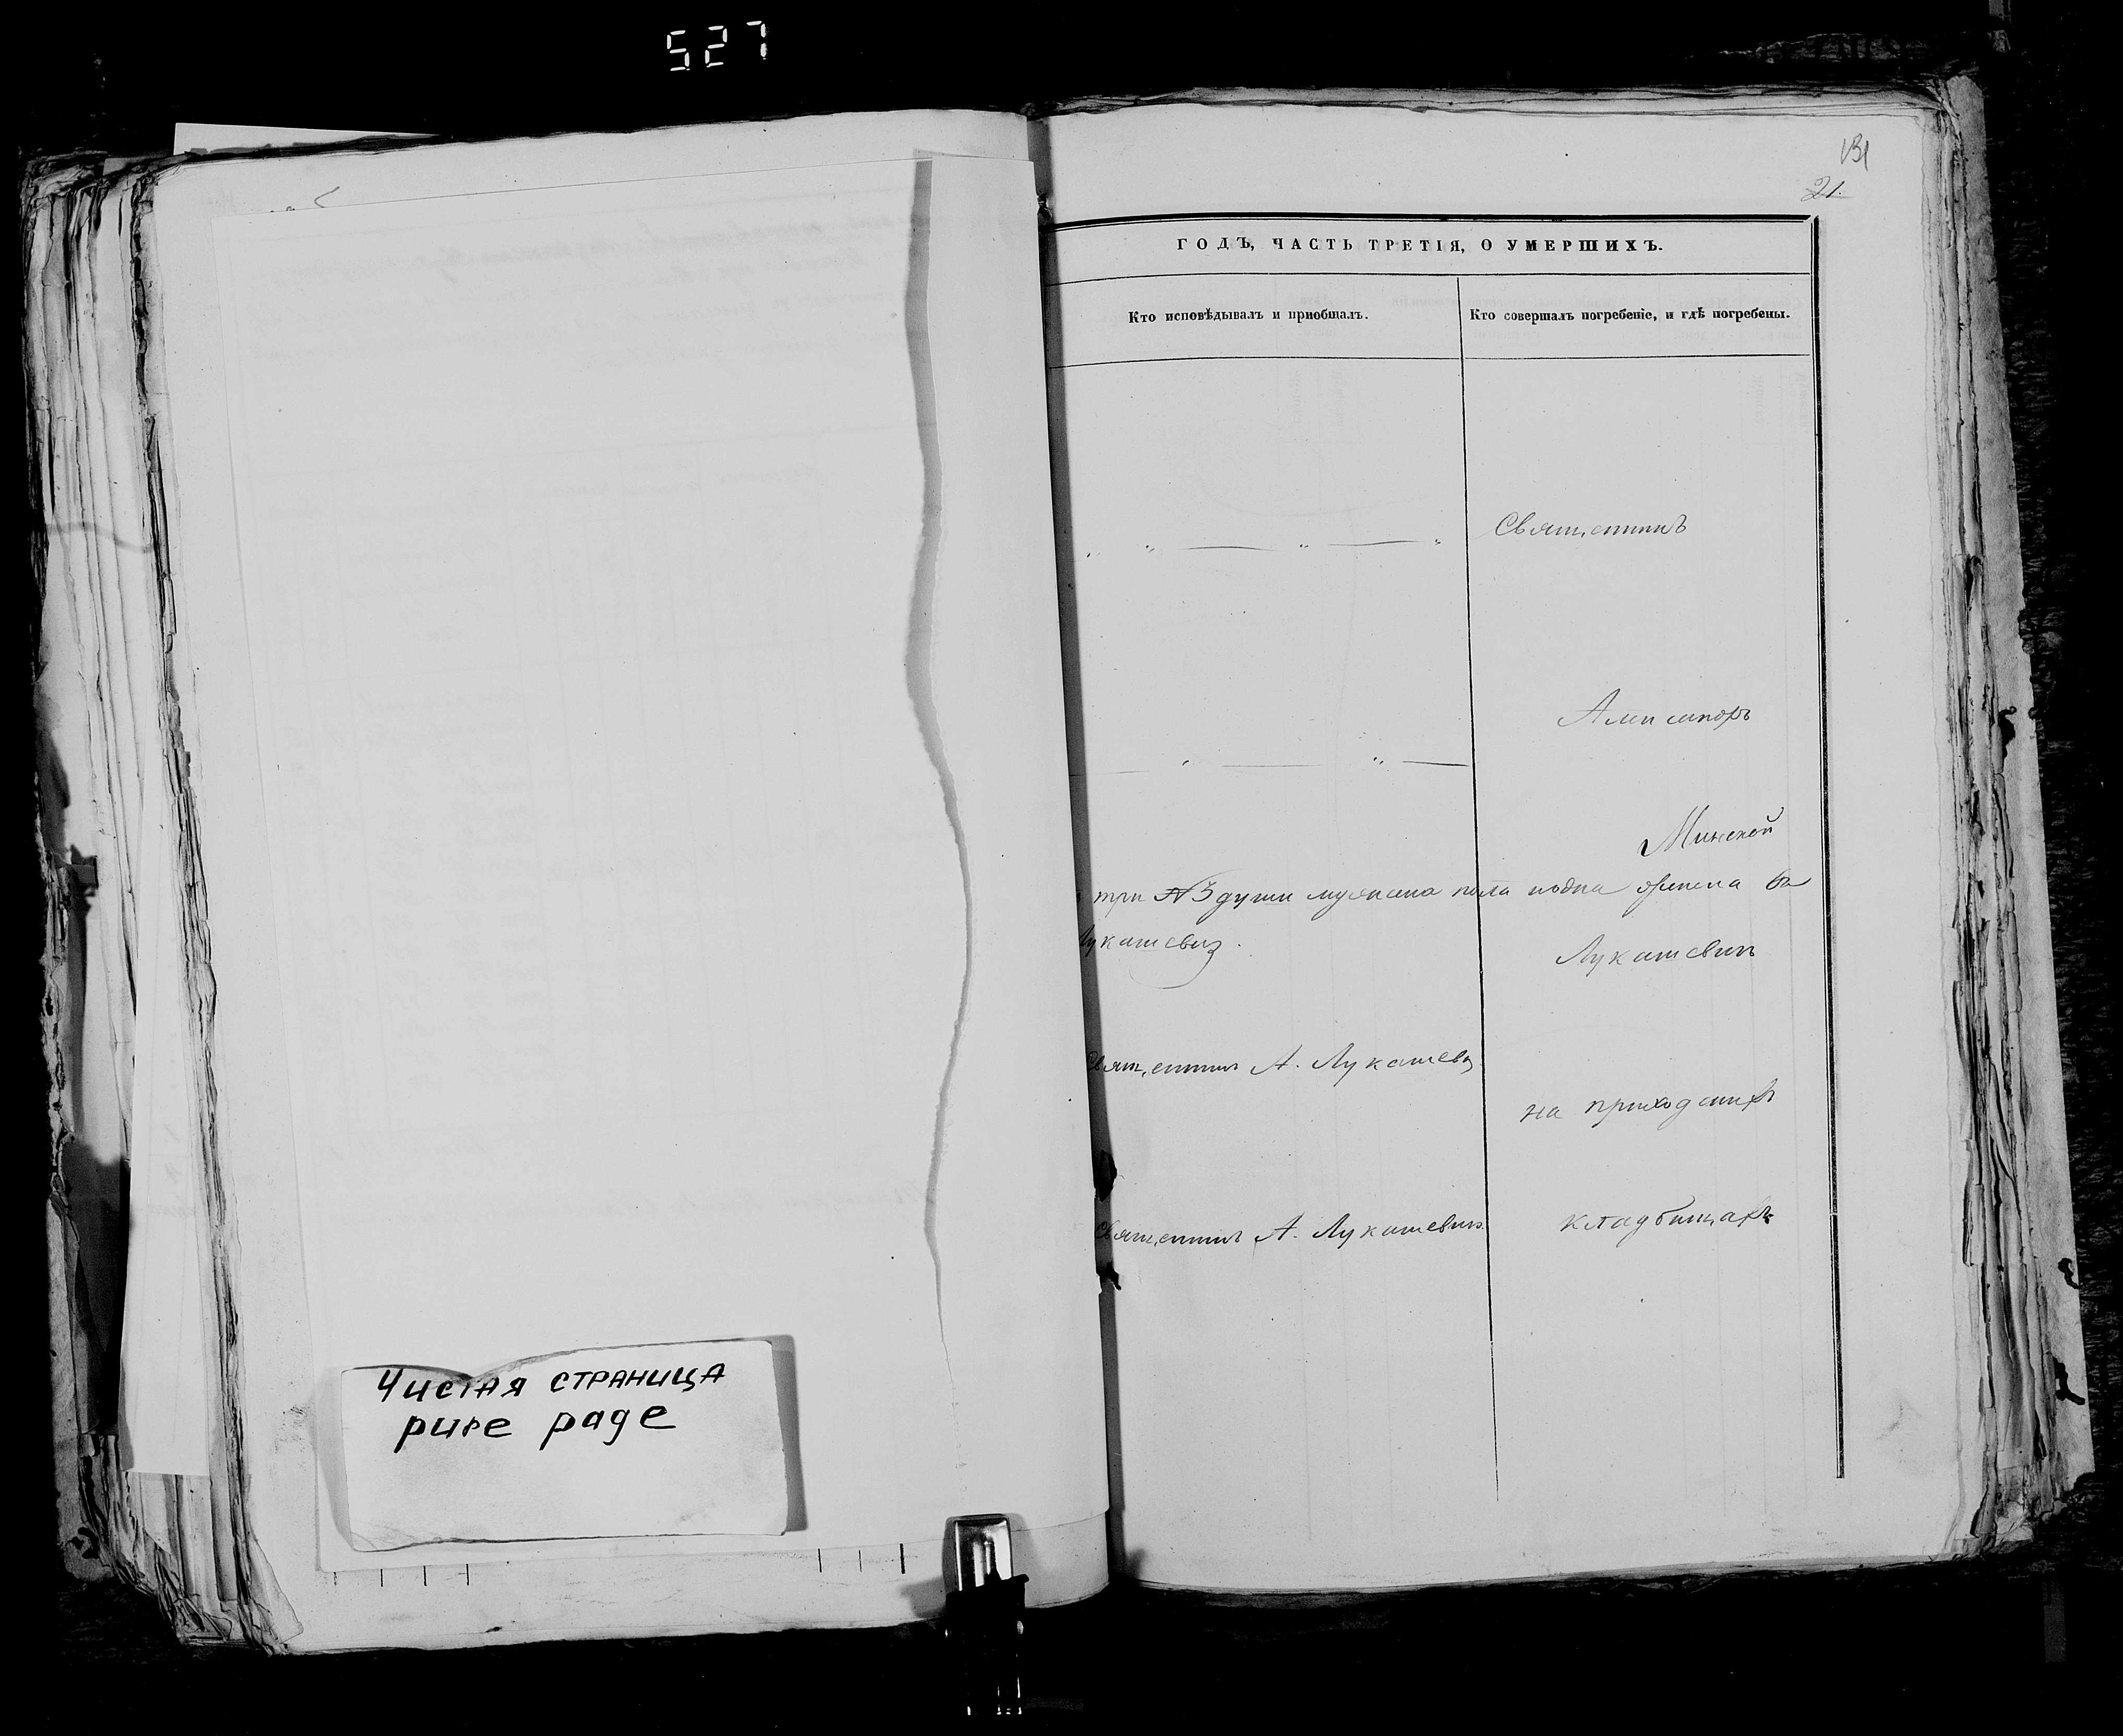 527
131
21.
ГОДЪ, ЧАСТЬ ТРЕТІЯ, О УМЕРШИХЪ.
Кто исповѣдывалъ и приобщалъ.
Кто совершалъ погребеніе, и гдѣ погребены.
Священникъ
Минской
три душ мужеска пола
Лукашевичъ.
Лукашевичъ
Священникъ А. Лукашевичъ
на приходскихъ
Священникъ А. Лукашевичъ
кладбищахъ
Чистая страница
pure page